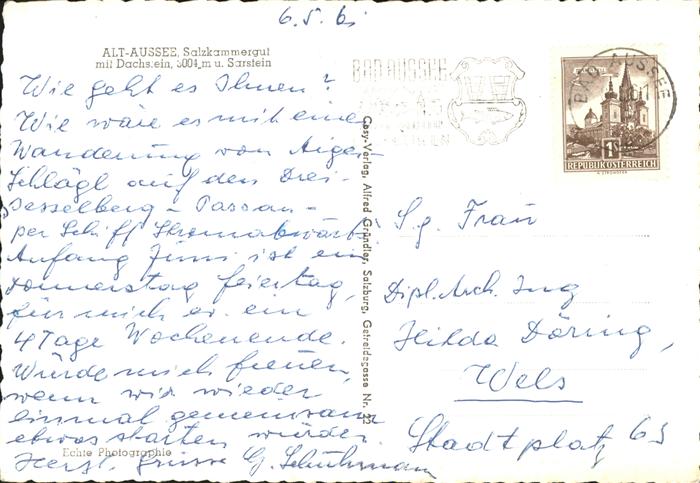 6.5.61
ALT-AUSSEE, Salzkammergut
mit Dachstein, 3004 m u. Sarstein
Wie geht es Ihnen?
Wie wäre es mit einer
Wanderung von Aigen-
Schlägl auf den Drei-
sesselberg - Passau -
per Schiff Stromabwärts.
Anfang Juni ist ein
Donnerstag feiertag,
für mich ev. ein
4 Tage Wochenende.
Würde mich freuen,
wenn wir wieder
einmal gemeinsam
etwas starten würden.
Herzl. Grüsse
Echte Photographie
Cosy-Verlag, Alfred Gründler, Salzburg, Getreidegasse Nr. 23
BAD AUSSEE
BAD AUSSEE
1S
REPUBLIK ÖSTERREICH
S.g. Frau
Dipl. Arch. Ing
Hilda Döring,
Wels
Stadtplatz 63